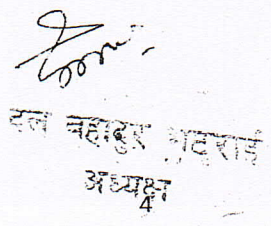 दल बहादुर भट्टराई
अध्यक्ष
4